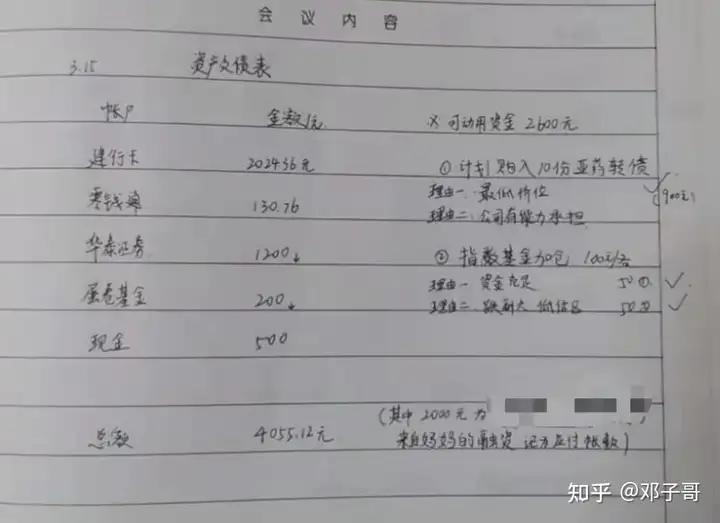 会议内容
3.15 资产负债表
帐户 金额/元 ※ 可动用资金 2600元
建行卡 2024.36元 ① 计划购入10份亚药转债
零钱通 130.76 理由一 最低价位 (900元)
理由二 公司有能力承担
华泰证券 1200↓ ② 指数基金加仓 100元/份
蛋卷基金 200↓ 理由一 资金充足 50 ① ✓
理由二 跌幅大 低估区 50 ② ✓
现金 500
(其中 2000元为
总额 4055.12元 来自妈妈的融资 记为应付帐款)
知乎 @邓子哥